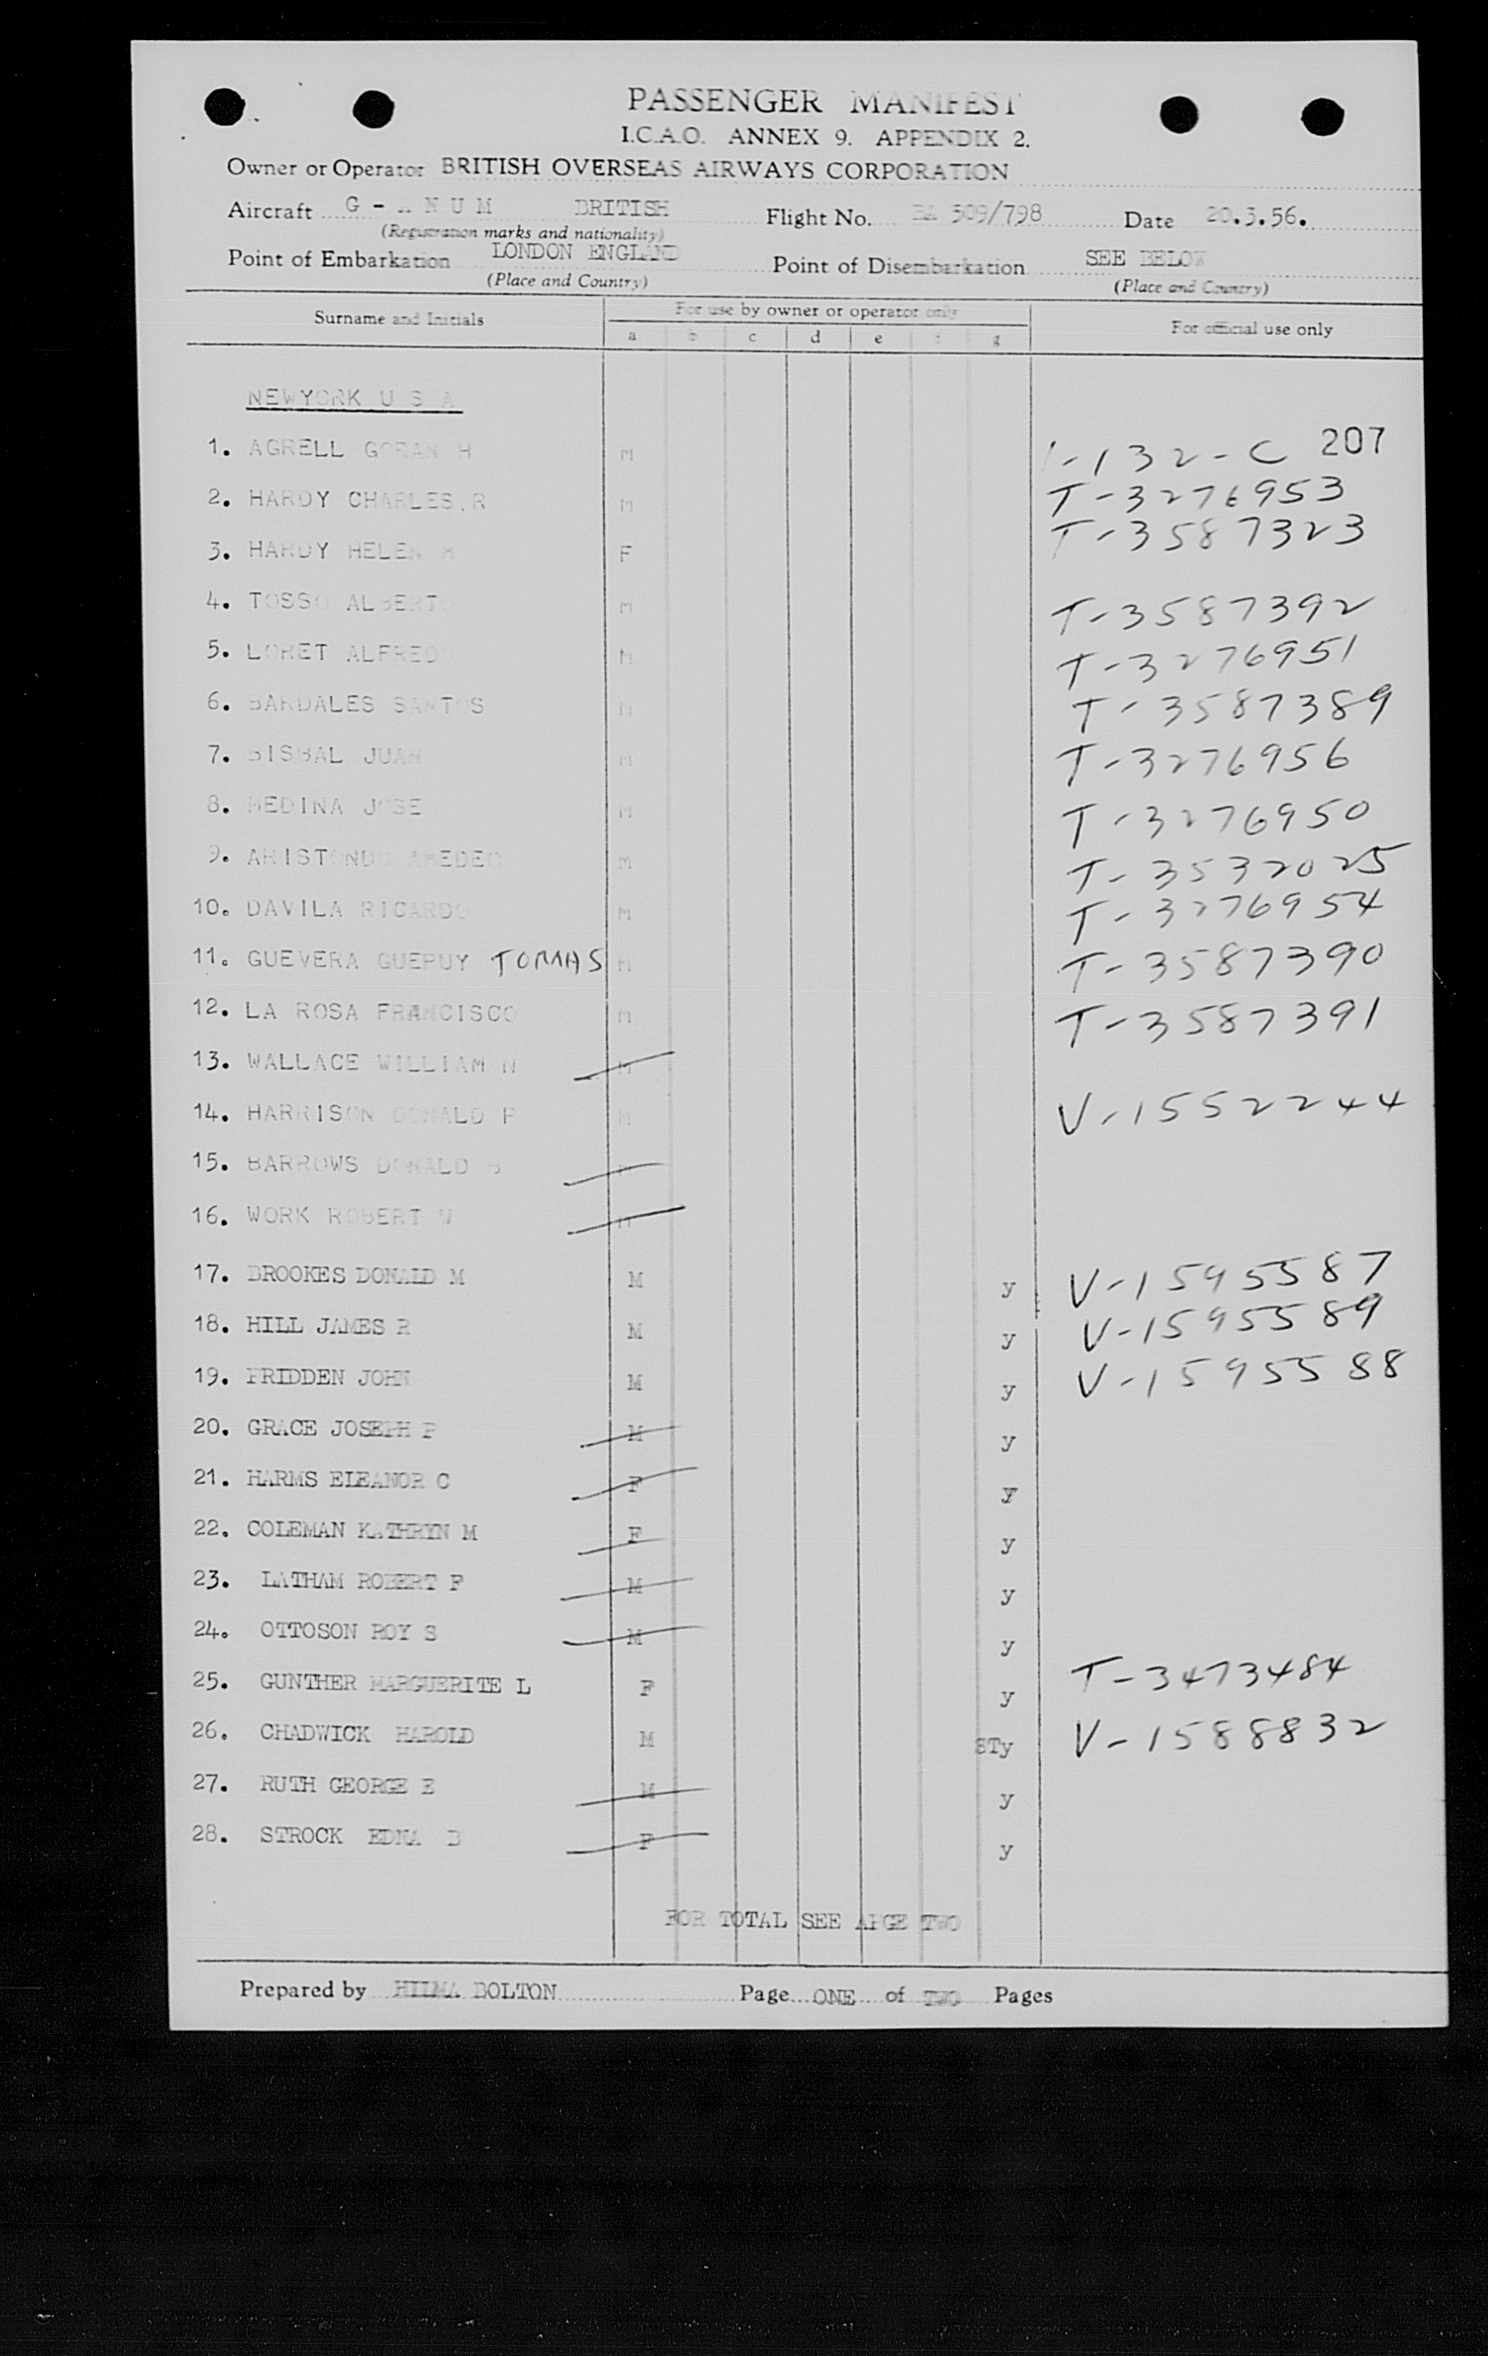 PASSENGER MANIFEST
I.C.A.O. ANNEX 9. APPENDIX 2.
Owner or Operator BRITISH OVERSEAS AIRWAYS CORPORATION
Aircraft G - N U M BRITISH Flight No. BA 509/798 Date 20.3.56.
(Registration marks and nationality)
Point of Embarkation LONDON ENGLAND Point of Disembarkation SEE BELOW
(Place and Country) (Place and Country)
Surname and Initials For use by owner or operator only For official use only
a b c d e f g
NEWYORK U S A
207
1. AGRELL GORAN H M -132-C
2. HARDY CHARLES.R M T-3276953
3. HARDY HELEN M F T-3587323
4. TOSSO ALBERTO M T-3587392
5. LORET ALFREDO M T-3276951
6. BARDALES SANTOS M T-3587389
7. BISBAL JUAN M T-3276956
8. MEDINA JOSE M T-3276950
9. ARISTONDO AMEDEO M T-3532025
10. DAVILA RICARDO M T-3276954
11. GUEVERA GUEPUY TOMAS M T-3587390
12. LA ROSA FRANCISCO M T-3587391
13. WALLACE WILLIAM N M
14. HARRISON DONALD P M V-1552244
15. BARROWS DONALD S M
16. WORK ROBERT W M
17. BROOKES DONALD M M y V-1595587
18. HILL JAMES R M y V-1595589
19. PRIDDEN JOHN M y V-1595588
20. GRACE JOSEPH P M y
21. HARMS ELEANOR C F y
22. COLEMAN KATHRYN M F y
23. LATHAM ROBERT F M y
24. OTTOSON ROY S M y
25. GUNTHER MARGUERITE L F y T-3473484
26. CHADWICK HAROLD M STy V-1588832
27. RUTH GEORGE E M y
28. STROCK EDNA B F y
FOR TOTAL SEE APGE TWO
Prepared by HILMA BOLTON Page ONE of TWO Pages